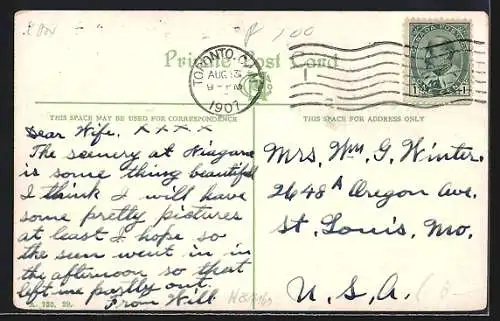 P 100
Private Post Card
TORONTO, CAN.
AUG 13
1907
1
CANADA POSTAGE
1 1
THIS SPACE MAY BE USED FOR CORRESPONDENCE
THIS SPACE FOR ADDRESS ONLY
Dear Wife. X X X X
The scenery at Niagara
is some thing beautiful
I think I will have
some pretty pictures
at least I hope so
the sun went in in
the afternoon so that
left me partly out.
From Will
Mrs. Wm. G. Winter.
2648A Oregon Ave.
St. Louis, Mo.
U.S.A.